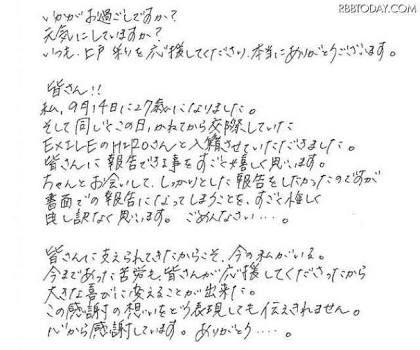 RBBTODAY.COM
いかがお過ごしですか?
元気にしていますか?
いつも、上戸 彩を応援してくださり、本当にありがとうございます。
皆さん!!
私、9月14日に27歳になりました。
そして同じくこの日、かねてから交際していた
EXILEのHIROさんと入籍させていただきました。
皆さんに報告できる事をすごく嬉しく思います。
ちゃんとお会いして、しっかりとした報告をしたかったのですが
書面での報告になってしまうことを、すごく悔しく
申し訳なく思います。ごめんなさい…。
皆さんに支えられてきたからこそ、今の私がいる。
今まであった苦労も皆さんが応援してくださったから
大きな喜びに変えることが出来た。
この感謝の想いをどう表現しても伝えきれません。
心から感謝しています。ありがとう…。